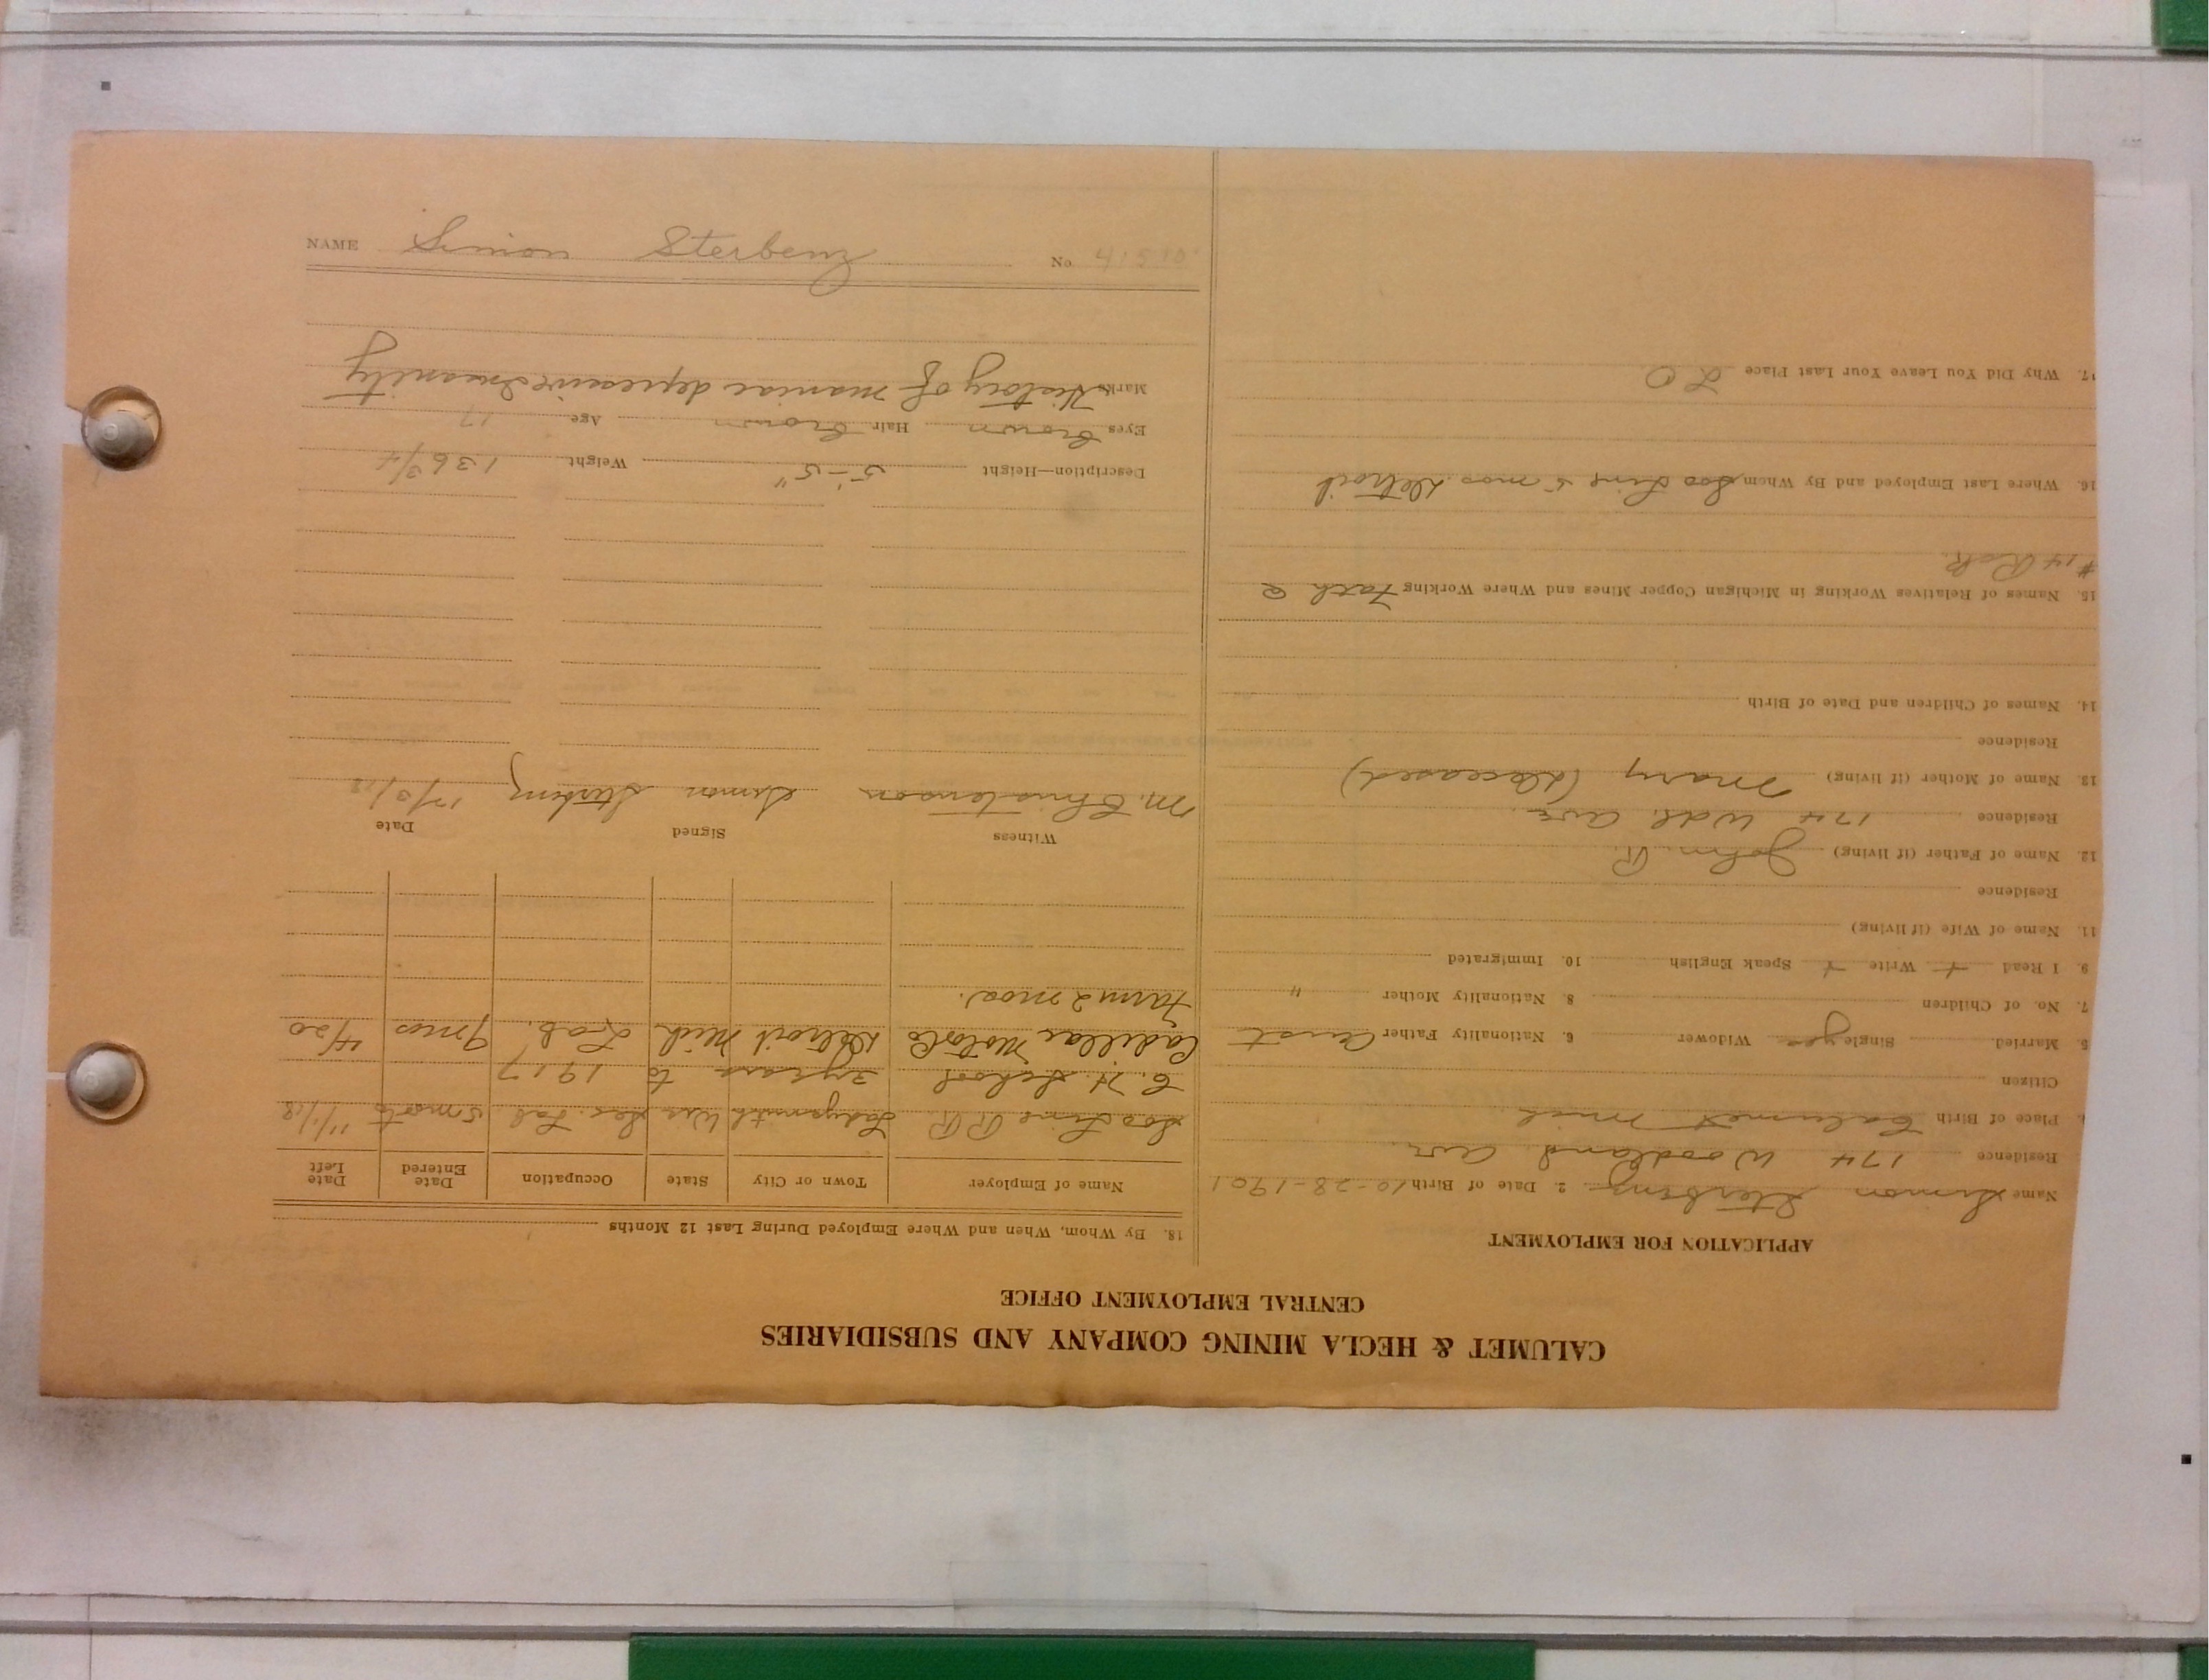 CALUMET & HECLA MINING COMPANY AND SUBSIDIARIES
CENTRAL EMPLOYMENT OFFICE
APPLICATION FOR EMPLOYMENT
Name Simon Sterbenz 2. Date of Birth 10-28-1901
Residence 174 Woodland Ave.
Place of Birth Calumet Mich.
Citizen
5. Married Single yes Widower 6. Nationality Father Aust
7. No. of Children 8. Nationality Mother "
9. I Read + Write + Speak English 10. Immigrated
11. Name of Wife (if living)
Residence
12. Name of Father (if living) John R.
Residence 174 Wdl. Ave.
13. Name of Mother (if living) Mary (deceased)
Residence
14. Names of Children and Date of Birth
15. Names of Relatives Working in Michigan Copper Mines and Where Working Fath @
#14 Rck.
16. Where Last Employed and By Whom Soo Line 5 mos. Detroit
17. Why Did You Leave Your Last Place L O
18. By Whom, When and Where Employed During Last 12 Months
Name of Employer Town or City State Occupation Date Entered Date Left
Soo Line RR. Ladysmith Wis Sec. Lab 5 mos to 11/1/18
C. H. School 3 years to 1917
Cadillac Motor Co Detroit Mich Lab. 9 mos 4/20
Farm 2 mos.
Witness Signed Date
M. Christenson Simon Sterbenz 12/3/18
Description—Height 5'-5" Weight 136 3/4
Eyes brown Hair brown Age 17
Marks History of maniac depressive insanity
NAME Simon Sterbenz No. 41510